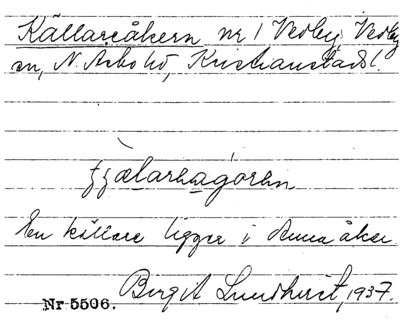 Källareåkern nr 1 Vedby, Vedby
sn, N. Åsbo hd, Kristianstads l.
En källare ligger i denna åker
Birgit Lundkvist, 1937.
Nr 5506.